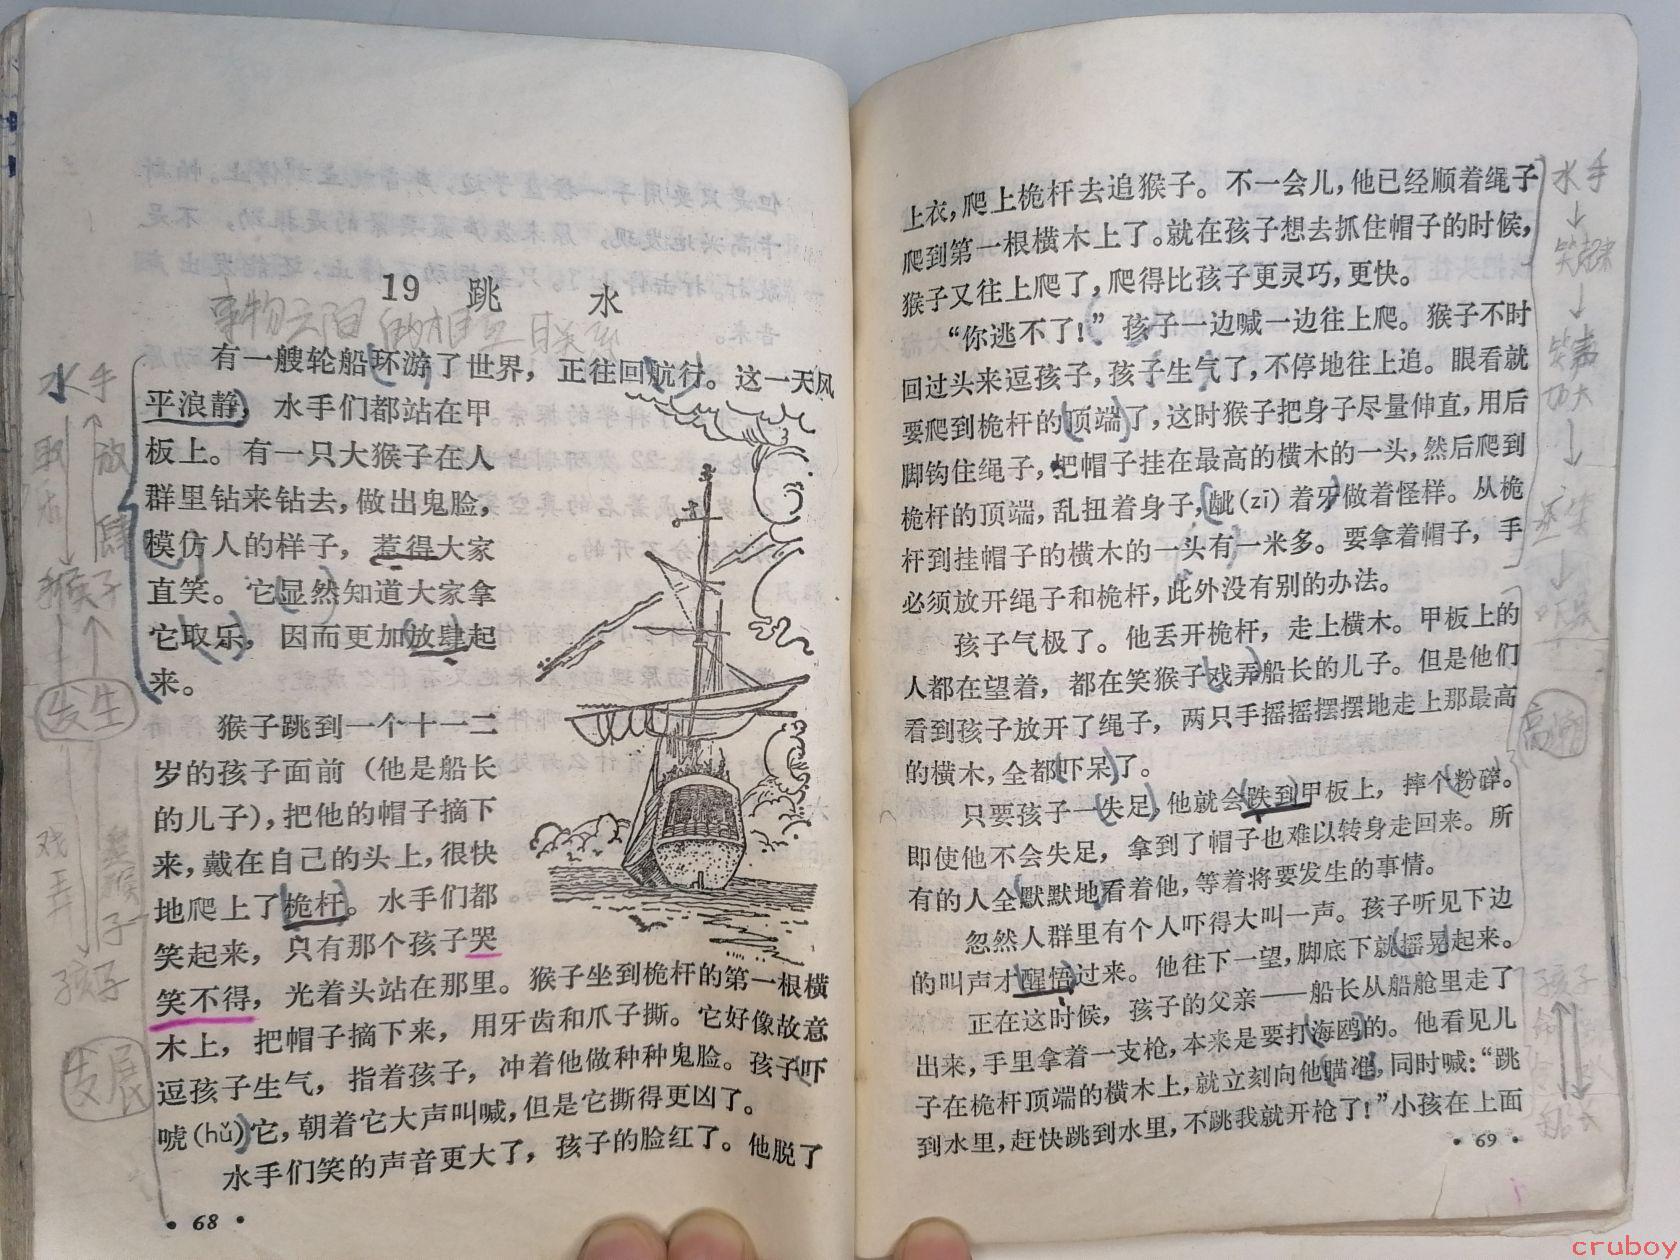 19 跳 水
事物之间的相互联系
有一艘轮船环游了世界，正往回航行。这一天风
平浪静，水手们都站在甲
板上。有一只大猴子在人
群里钻来钻去，做出鬼脸，
模仿人的样子，惹得大家
直笑。它显然知道大家拿
它取乐，因而更加放肆起
来。
猴子跳到一个十一二
岁的孩子面前（他是船长
的儿子），把他的帽子摘下
来，戴在自己的头上，很快
地爬上了桅杆。水手们都
笑起来，只有那个孩子哭
笑不得，光着头站在那里。猴子坐到桅杆的第一根横
木上，把帽子摘下来，用牙齿和爪子撕。它好像故意
逗孩子生气，指着孩子，冲着他做种种鬼脸。孩子吓
唬(hǔ)它，朝着它大声叫喊，但是它撕得更凶了。
水手们笑的声音更大了，孩子的脸红了。他脱了
• 68 •
水手
取乐
放肆
猴子
发生
戏弄
孩子
发展
上衣，爬上桅杆去追猴子。不一会儿，他已经顺着绳子
爬到第一根横木上了。就在孩子想去抓住帽子的时候，
猴子又往上爬了，爬得比孩子更灵巧，更快。
“你逃不了！”孩子一边喊一边往上爬。猴子不时
回过头来逗孩子，孩子生气了，不停地往上追。眼看就
要爬到桅杆的顶端了，这时猴子把身子尽量伸直，用后
脚钩住绳子，把帽子挂在最高的横木的一头，然后爬到
桅杆的顶端，乱扭着身子，龇(zī)着牙做着怪样。从桅
杆到挂帽子的横木的一头有一米多。要拿着帽子，手
必须放开绳子和桅杆，此外没有别的办法。
孩子气极了。他丢开桅杆，走上横木。甲板上的
人都在望着，都在笑猴子戏弄船长的儿子。但是他们
看到孩子放开了绳子，两只手摇摇摆摆地走上那最高
的横木，全都吓呆了。
只要孩子一失足，他就会跌到甲板上，摔个粉碎。
即使他不会失足，拿到了帽子也难以转身走回来。所
有的人全默默地看着他，等着将要发生的事情。
忽然人群里有个人吓得大叫一声。孩子听见下边
的叫声才醒悟过来。他往下一望，脚底下就摇晃起来。
正在这时候，孩子的父亲——船长从船舱里走了
出来，手里拿着一支枪，本来是要打海鸥的。他看见儿
子在桅杆顶端的横木上，就立刻向他瞄准，同时喊：“跳
到水里，赶快跳到水里，不跳我就开枪了！”小孩在上面
• 69 •
水手
笑起来
笑声
更大
高潮
孩子
cruboy